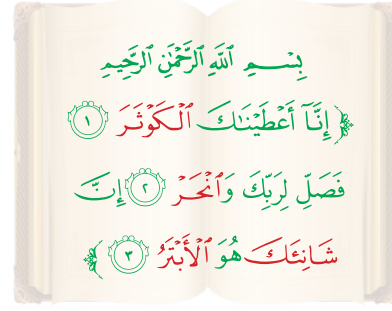 بِسْمِ ٱللَّهِ ٱلرَّحْمَٰنِ ٱلرَّحِيمِ
﴿إِنَّآ أَعْطَيْنَٰكَ ٱلْكَوْثَرَ ١
فَصَلِّ لِرَبِّكَ وَٱنْحَرْ ٢ إِنَّ
شَانِئَكَ هُوَ ٱلْأَبْتَرُ ٣﴾